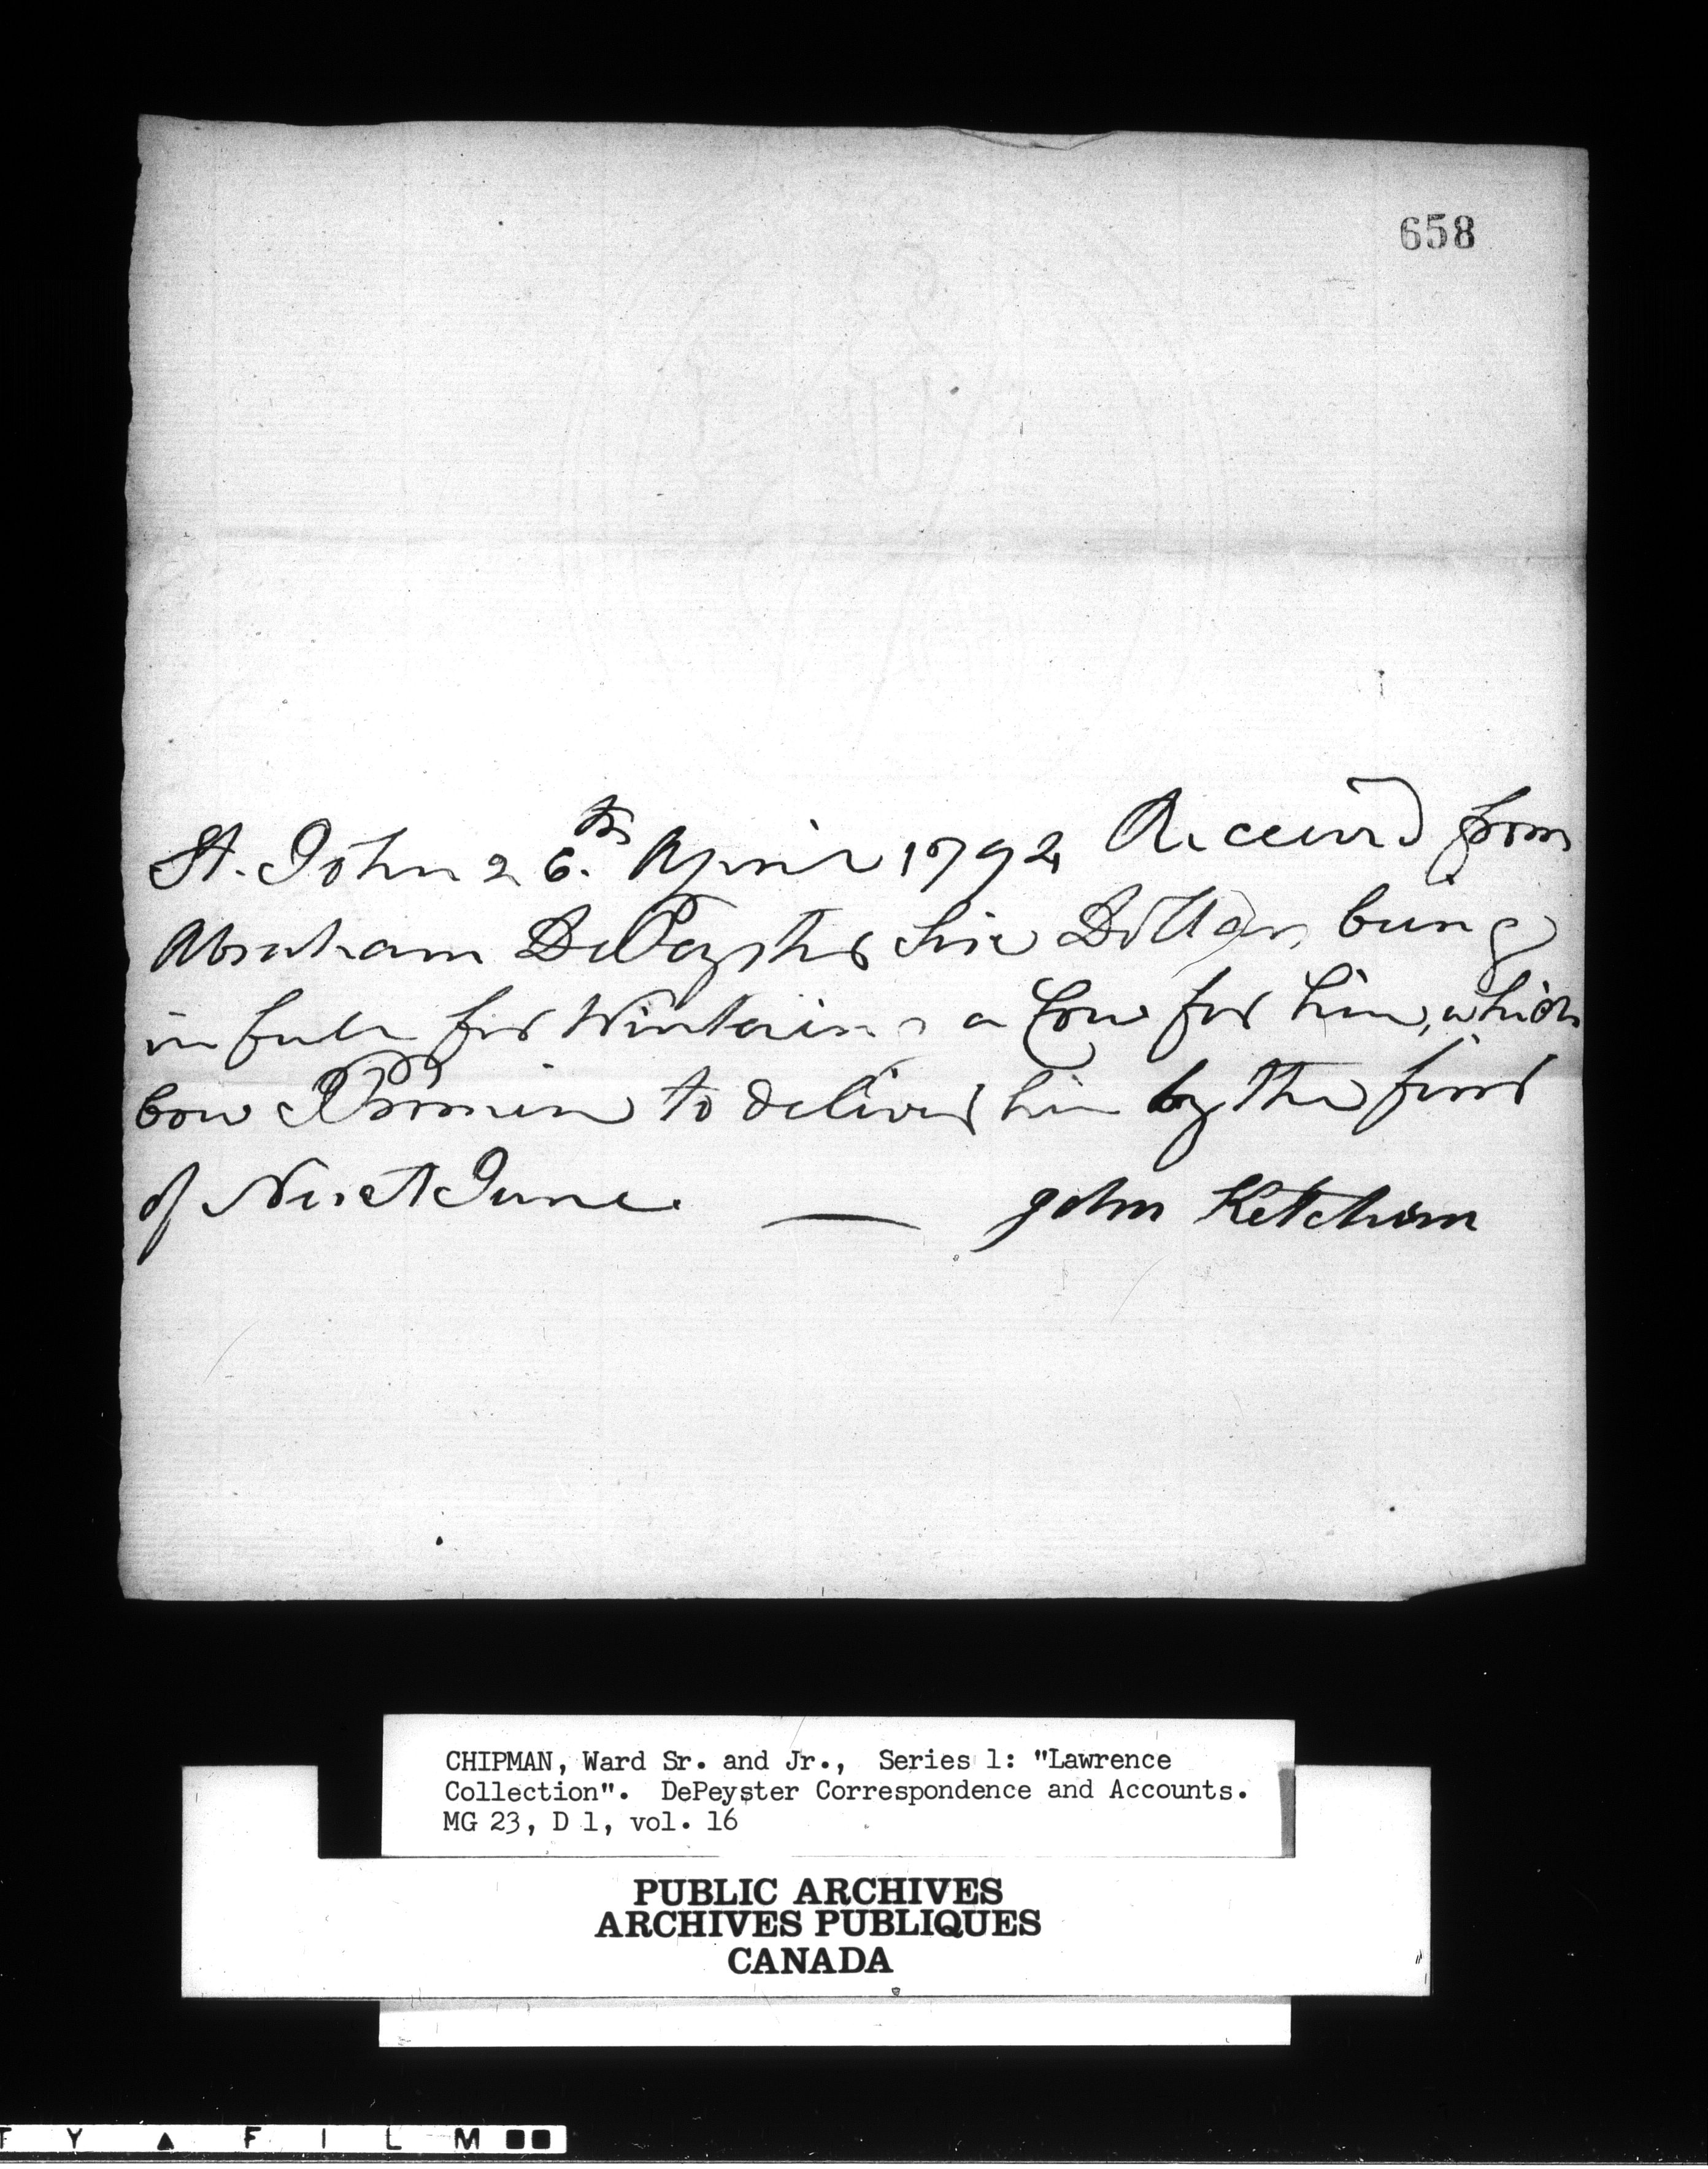 658
St. John 26.th April 1792 Received from
Abraham DePeyster Six Dollars being
in full for Wintering a Cow for him, which
Cow I Promise to deliver him by the first
of Next June. — John Ketchum
CHIPMAN, Ward Sr. and Jr., Series 1: "Lawrence
Collection". DePeyster Correspondence and Accounts.
MG 23, D 1, vol. 16
PUBLIC ARCHIVES
ARCHIVES PUBLIQUES
CANADA
T Y ▲ F I L M ■■